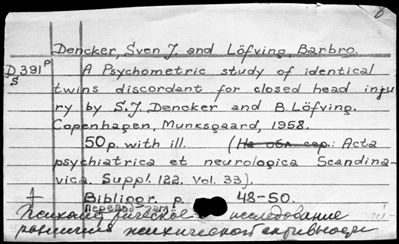 8
Dencker, Sven J. and Löfving, Barbro.
D391 P
S
A Psychometric study of identical
twins discordant for closed head inju
ry by S.J. Dencker and B. Löfving.
Copenhagen, Munksgaard, 1958.
50 p. with ill. (На обл. сер.: Acta
psychiatrica et neurologica Scandina-
vica. Suppl. 122. Vol. 33).
Bibliogr. p. 48-50.
Перевод загл.:
исследование
психической